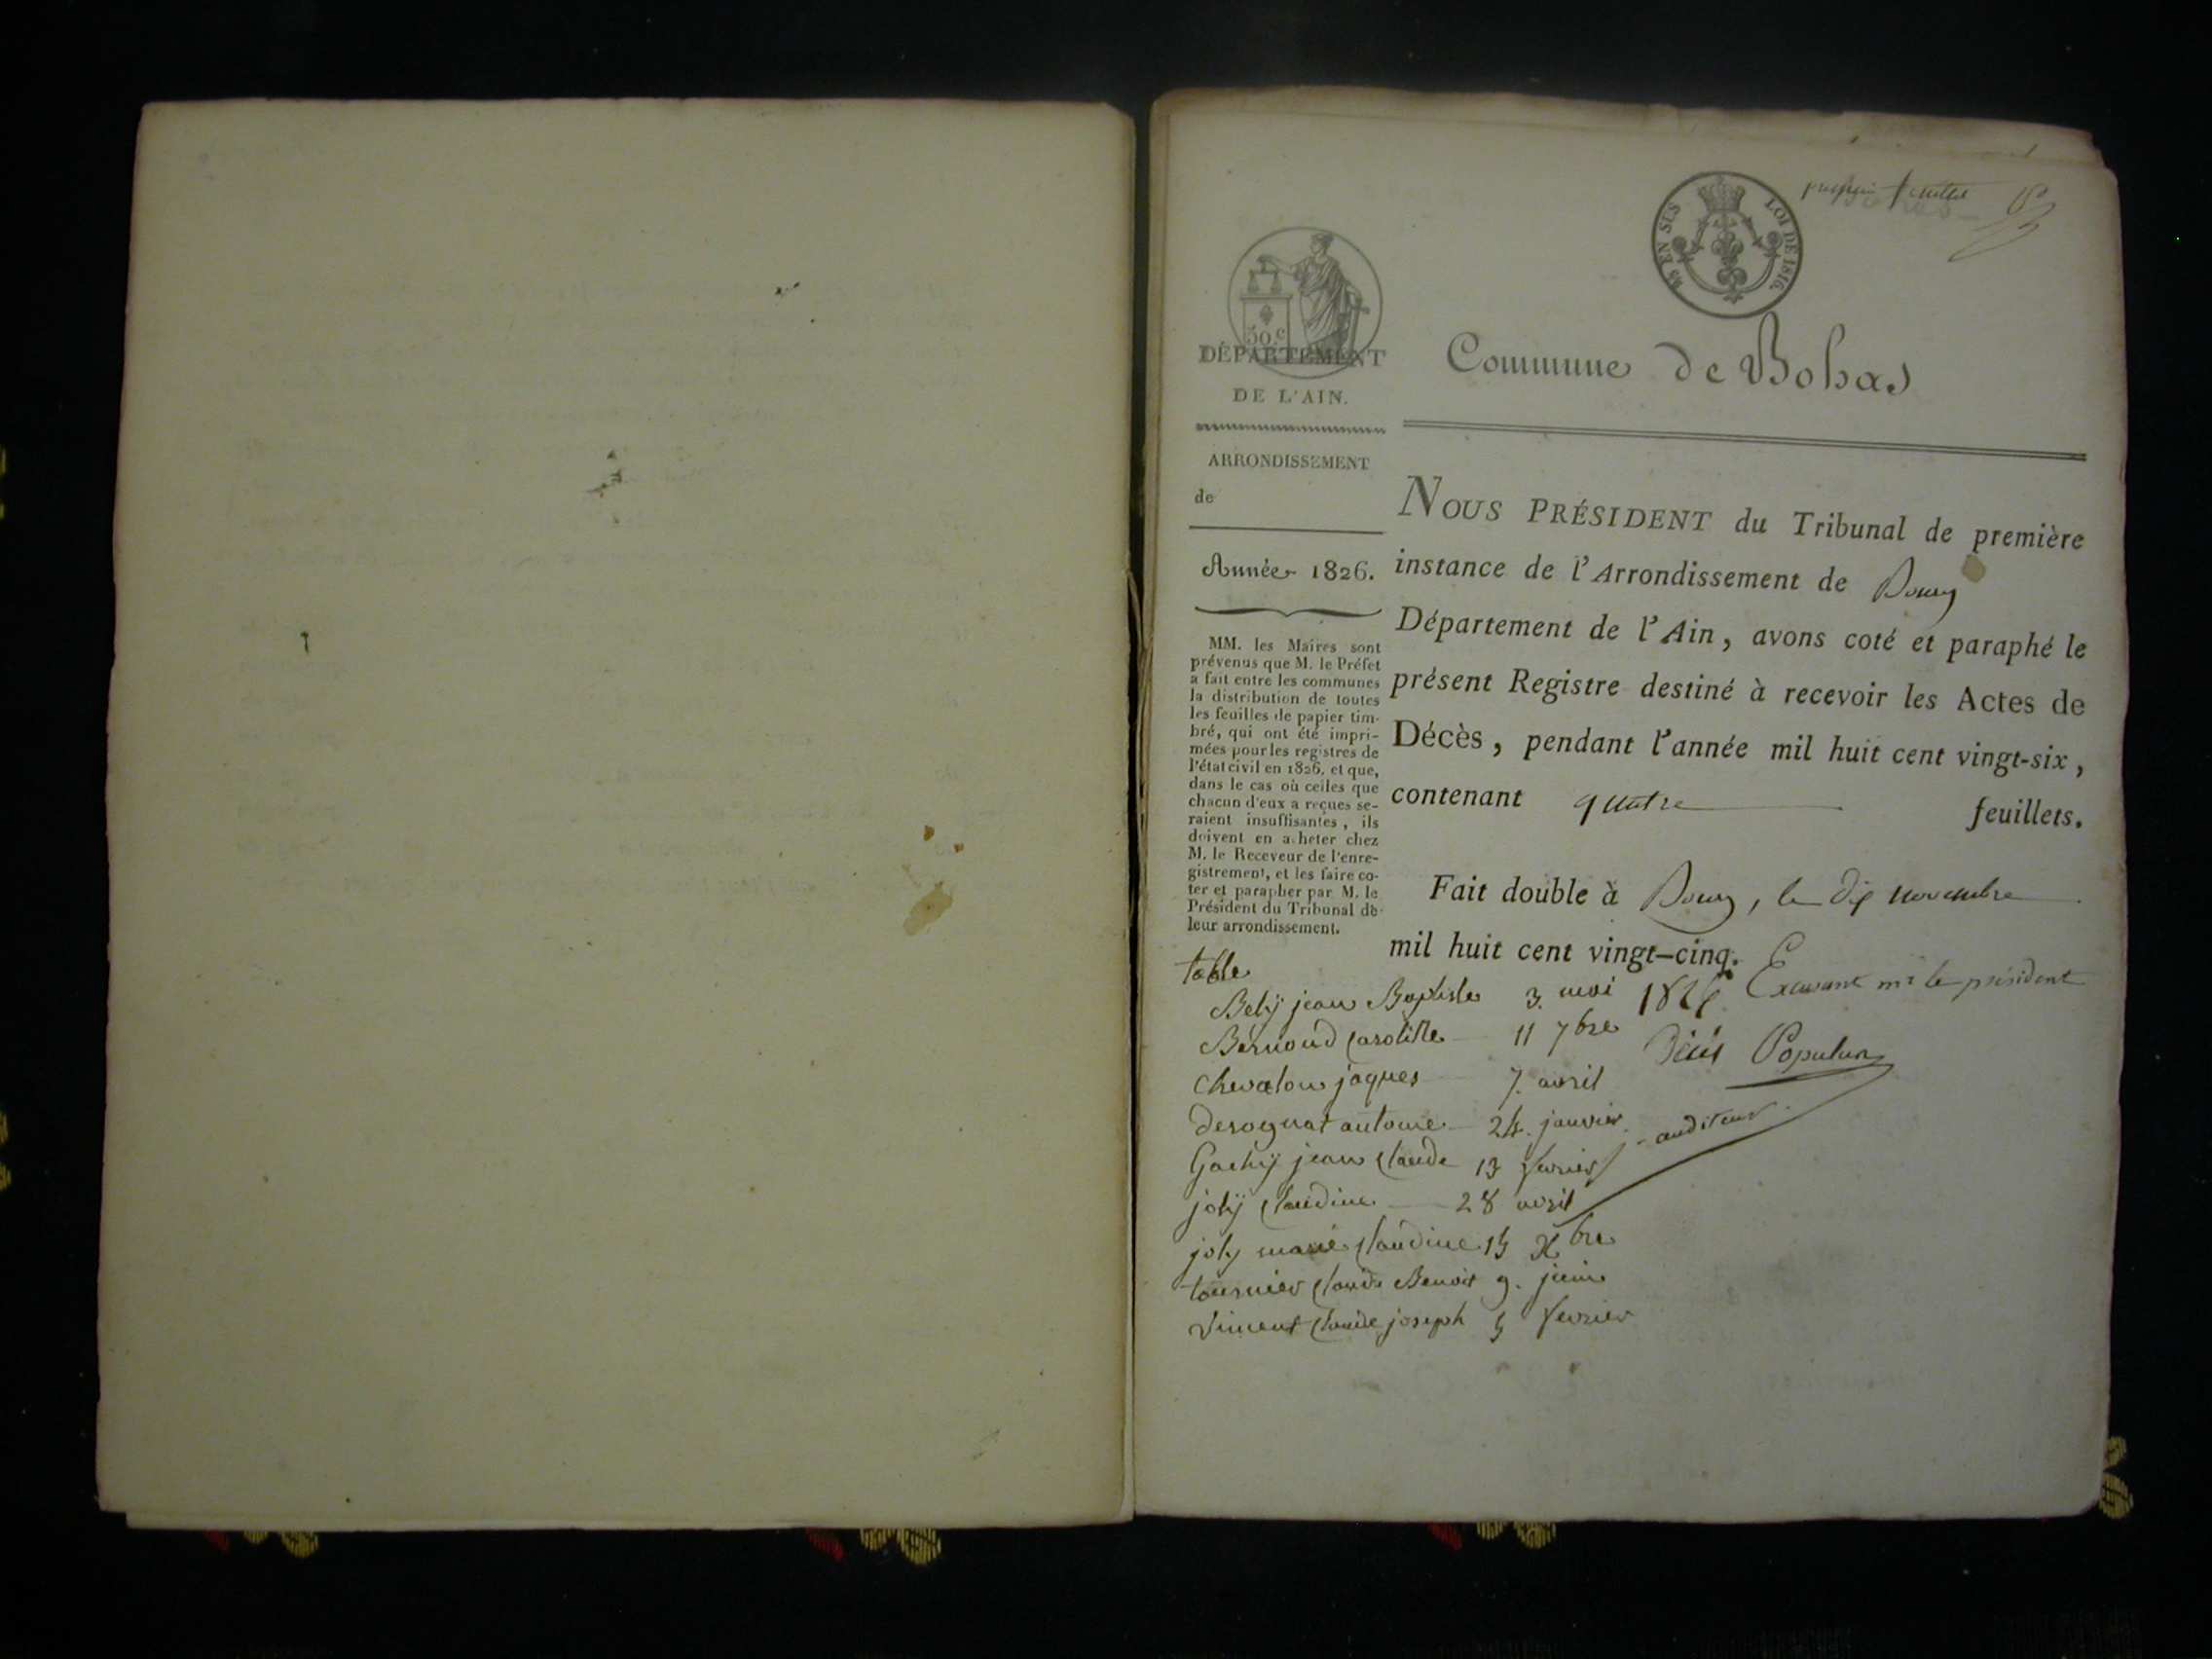 premier feuillet
M.is EN SUS LOI DE 1816.
50.c
DÉPARTEMENT
DE L'AIN.
Commune de Bohas
ARRONDISSEMENT
de
Année 1826.
MM. les Maires sont
prévenus que M. le Préfet
a fait entre les communes
la distribution de toutes
les feuilles de papier tim-
bré, qui ont été impri-
mées pour les registres de
l'état civil en 1826, et que,
dans le cas où celles que
chacun d'eux a reçues se-
raient insuffisantes, ils
doivent en acheter chez
M. le Receveur de l'enre-
gistrement, et les faire co-
ter et parapher par M. le
Président du Tribunal de
leur arrondissement.
NOUS PRÉSIDENT du Tribunal de première
instance de l'Arrondissement de Bourg
Département de l'Ain, avons coté et paraphé le
présent Registre destiné à recevoir les Actes de
Décès, pendant l'année mil huit cent vingt-six,
contenant quatre feuillets.
Fait double à Bourg, le dix novembre
mil huit cent vingt-cinq.
Exavant mr le président
Populus
auditeur
table
Bely jean Baptiste 3. mai 1826
Bernoud 11 7bre
Chevalon jaques 7. avril
desognat antoine 24. janvier
Gachÿ jean claude 13 fevrier
jolÿ claudine 28 avril
joly marie claudine 15 Xbre
tournier claude Benoit 9. juin
Vincent claude joseph 5 fevrier